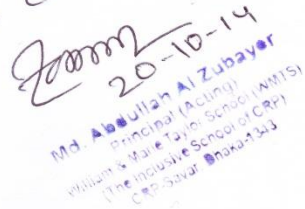 20-10-14
Md. Abdullah Al Zubayer
Principal (Acting)
William & Marie Taylor School (WMTS)
(The Inclusive School of CRP)
CRP-Savar Dhaka-1343